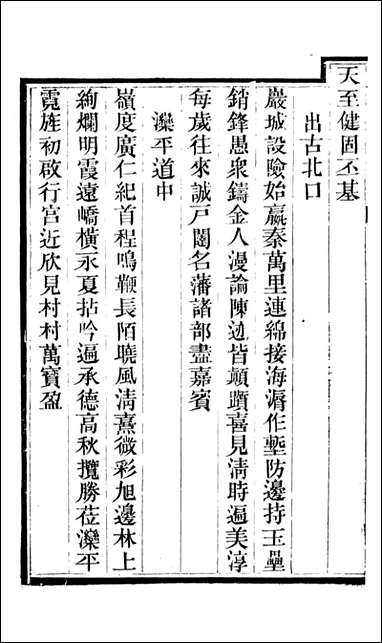 天至健固丕基
出古北口
巖城設險始嬴秦萬里連綿接海漘作塹防邊持玉壘
銷鋒愚衆鑄金人漫論陳迹皆顛躓喜見淸時遍美淳
每歲往來誠戸闥名藩諸部盡嘉賓
灤平道中
嶺度廣仁紀首程鳴鞭長陌曉風淸熹微彩旭邊林上
絢爛明霞遠嶠橫永夏拈吟遍承德高秋攬勝莅灤平
霓旌初啟行宫近欣見村村萬寶盈